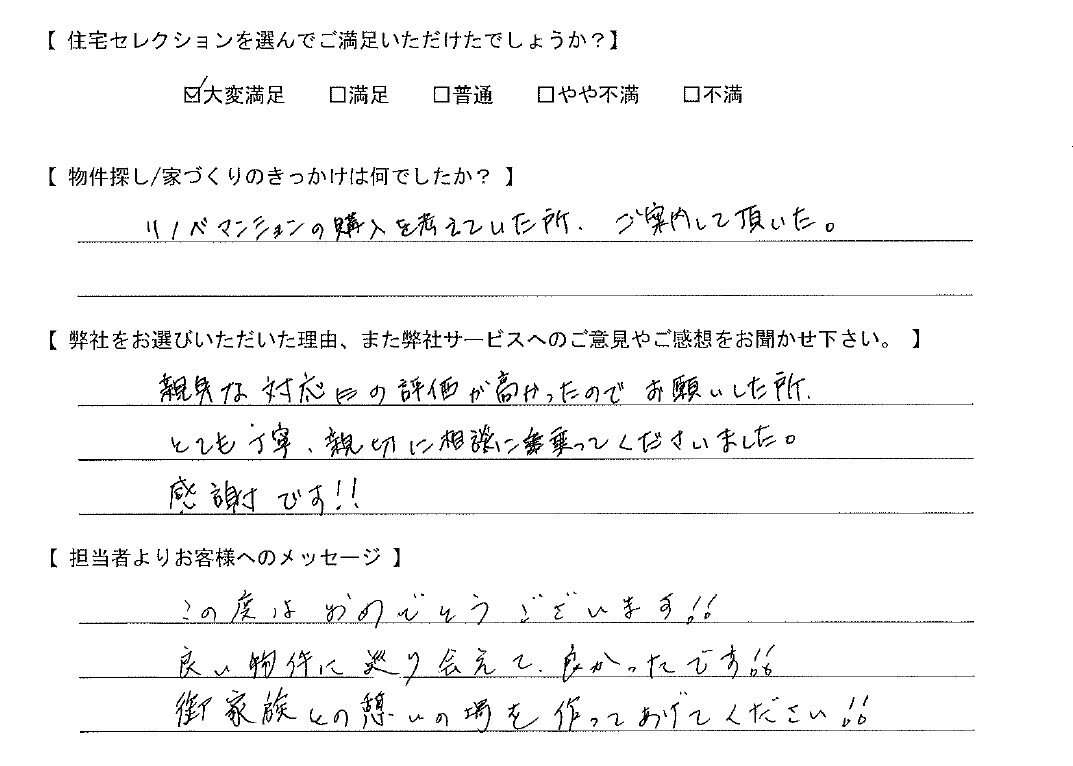 【 住宅セレクションを選んでご満足いただけたでしょうか？】
☑大変満足 □満足 □普通 □やや不満 □不満
【 物件探し/家づくりのきっかけは何でしたか？ 】
リノベマンションの購入を考えていた所、ご案内して頂いた。
【 弊社をお選びいただいた理由、また弊社サービスへのご意見やご感想をお聞かせ下さい。 】
親身な対応の評価が高かったのでお願いした所、
とても丁寧、親切に相談に乗ってくださいました。
感謝です!!
【 担当者よりお客様へのメッセージ 】
この度はおめでとうございます!!
良い物件に巡り会えて、良かったです!!
御家族との憩いの場を作ってあげてください!!